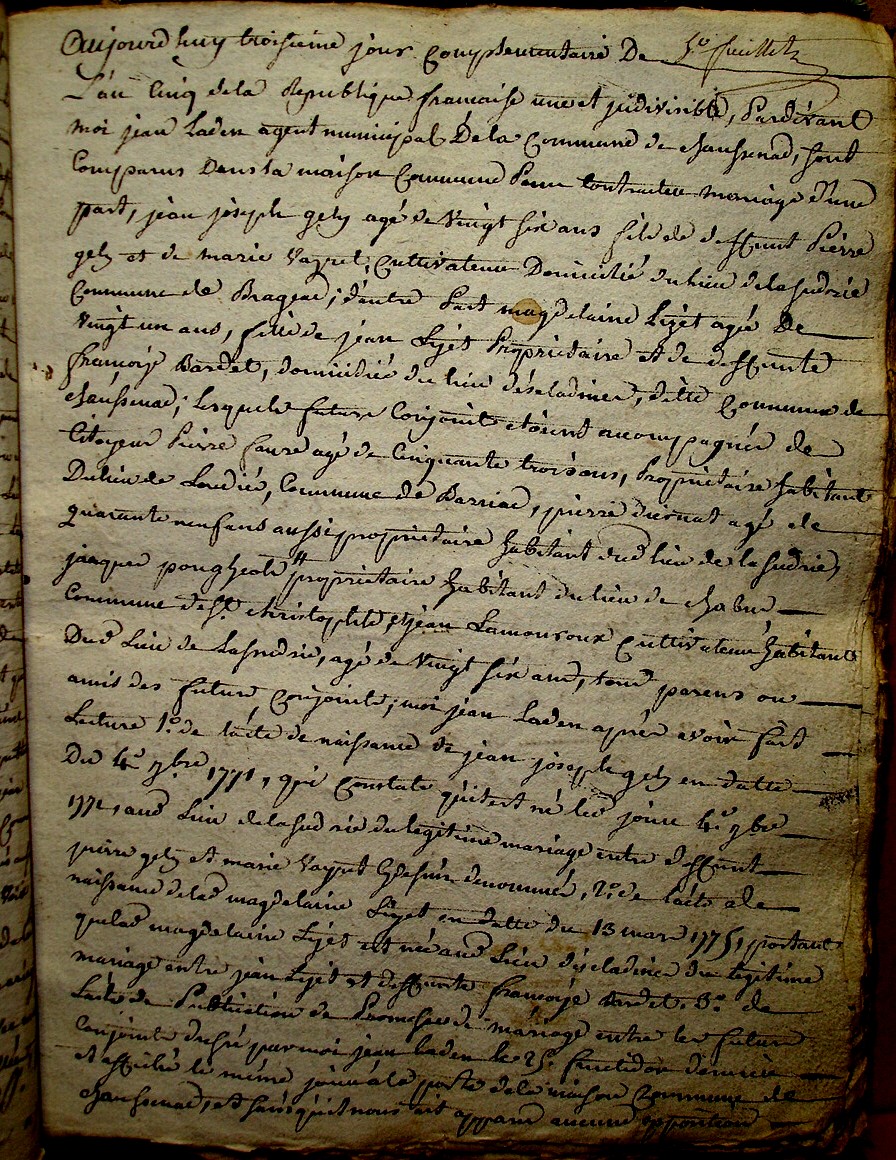 5e feuillet
Aujourd huy troisieme jour Complementaire De
L'an Cinq dela Republique francaise une et jndivisible, Pardévant
moi jean Laden agent municipal Dela Commune de chaussenac, sont
Comparus Dans la maison Commune Pour Contracter mariage d'une
part, jean joseph gely agé de vingt six ans fils de deffunt Pierre
gely et de marie Vayret, Cultivateur Domicilié du lieu de lasudrie
Commune de Brageac; d'autre Part magdelaine Lizet agée De
vingt un ans, fille de jean Lizet Propriétaire et de deffunte
francoise Bardet, domiciliée du lieu d'escladines, ditte Commune de
chaussenac; lesquels futurs Conjoints étoient acompagnés de
Citoyens Pierre fauré agé de Cinquante trois ans, Propriétaire habitant
Du lieu de Loudié, Commune De Barriac, pierre agé de
quarante neuf ans aussi propriétaire habitant dud lieu de lasudrie,
jacques pougheol propriétaire habitant du lieu de
Commune de St. Christophle, et jean Lamouroux Cultivateur habitant
Dud Lieu de Lasudrie, agé de vingt six ans, tous parens ou
amis des futurs Conjoints; moi jean Laden après avoir fait
Lecture 1o. de l'acte de naissance de jean joseph gely en datte
Du 4e 9bre 1771, qui Constate qu'il est né led jour 4e 9bre
1771, aud Lieu delasudrie du légitime mariage entre deffunt
pierre gely et marie Vayret dénommés, 2o. de l'acte de
naissance delad magdelaine Lizet en datte du 13 mars 1775, portant
quelad magdelaine Lizet est née aud Lieu d'escladines du légitime
mariage entre jean Lizet et deffunte francoise Bardet. 3o. de
L'acte de Publication de Promesses de mariage entre les futurs
Conjoints dressé par moi jean laden le 25e fructidor dernier
et affiché le même jour à la porte dela maison Commune de
chaussenac, et sans qu'il nous ait apparu aucune opposition